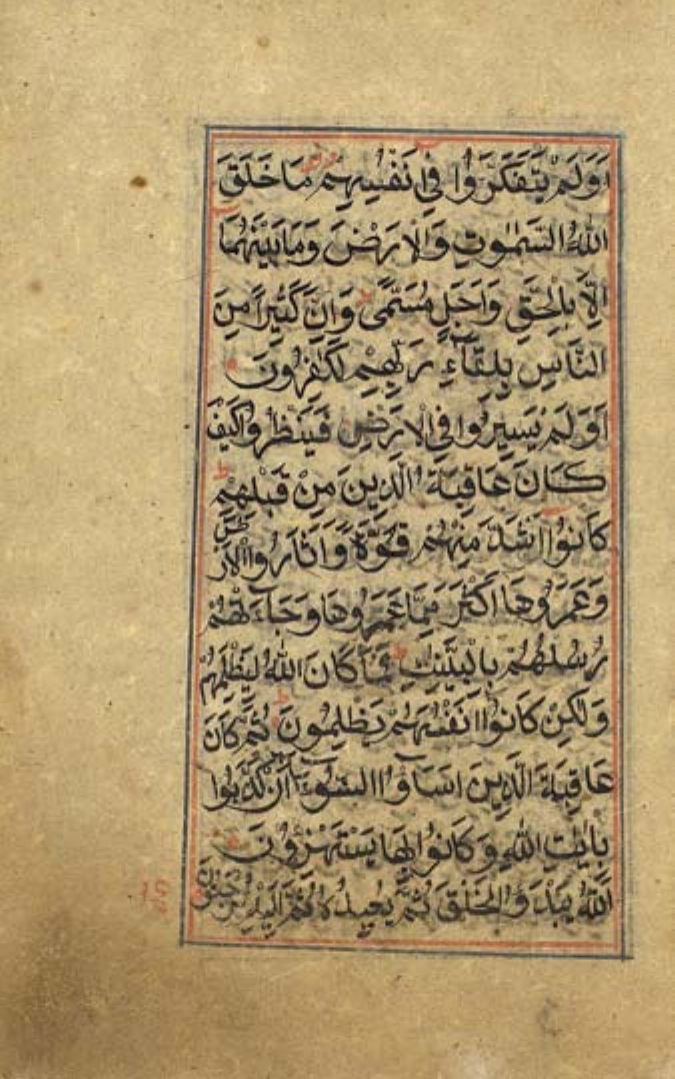 اَوَلَمْ يَتَفَكَّرُوْا فِيْ اَنْفُسِهِمْ مَا خَلَقَ
اللّٰهُ السَّمٰوٰتِ وَالْاَرْضَ وَمَا بَيْنَهُمَا
اِلَّا بِالْحَقِّ وَاَجَلٍ مُّسَمًّى وَاِنَّ كَثِيْرًا مِّنَ
النَّاسِ بِلِقَآءِ رَبِّهِمْ لَكٰفِرُوْنَ
اَوَلَمْ يَسِيْرُوْا فِي الْاَرْضِ فَيَنْظُرُوْا كَيْفَ
كَانَ عَاقِبَةُ الَّذِيْنَ مِنْ قَبْلِهِمْ ط
كَانُوْا اَشَدَّ مِنْهُمْ قُوَّةً وَّاَثَارُوا الْاَرْضَ
وَعَمَرُوْهَا اَكْثَرَ مِمَّا عَمَرُوْهَا وَجَآءَتْهُمْ
رُسُلُهُمْ بِالْبَيِّنٰتِ ط فَمَا كَانَ اللّٰهُ لِيَظْلِمَهُمْ
وَلٰكِنْ كَانُوْا اَنْفُسَهُمْ يَظْلِمُوْنَ ط ثُمَّ كَانَ
عَاقِبَةَ الَّذِيْنَ اَسَآؤُا السُّوْآٰى اَنْ كَذَّبُوْا
بِاٰيٰتِ اللّٰهِ وَكَانُوْا بِهَا يَسْتَهْزِؤُنَ
اَللّٰهُ يَبْدَؤُا الْخَلْقَ ثُمَّ يُعِيْدُهٗ ثُمَّ اِلَيْهِ تُرْجَعُوْنَ